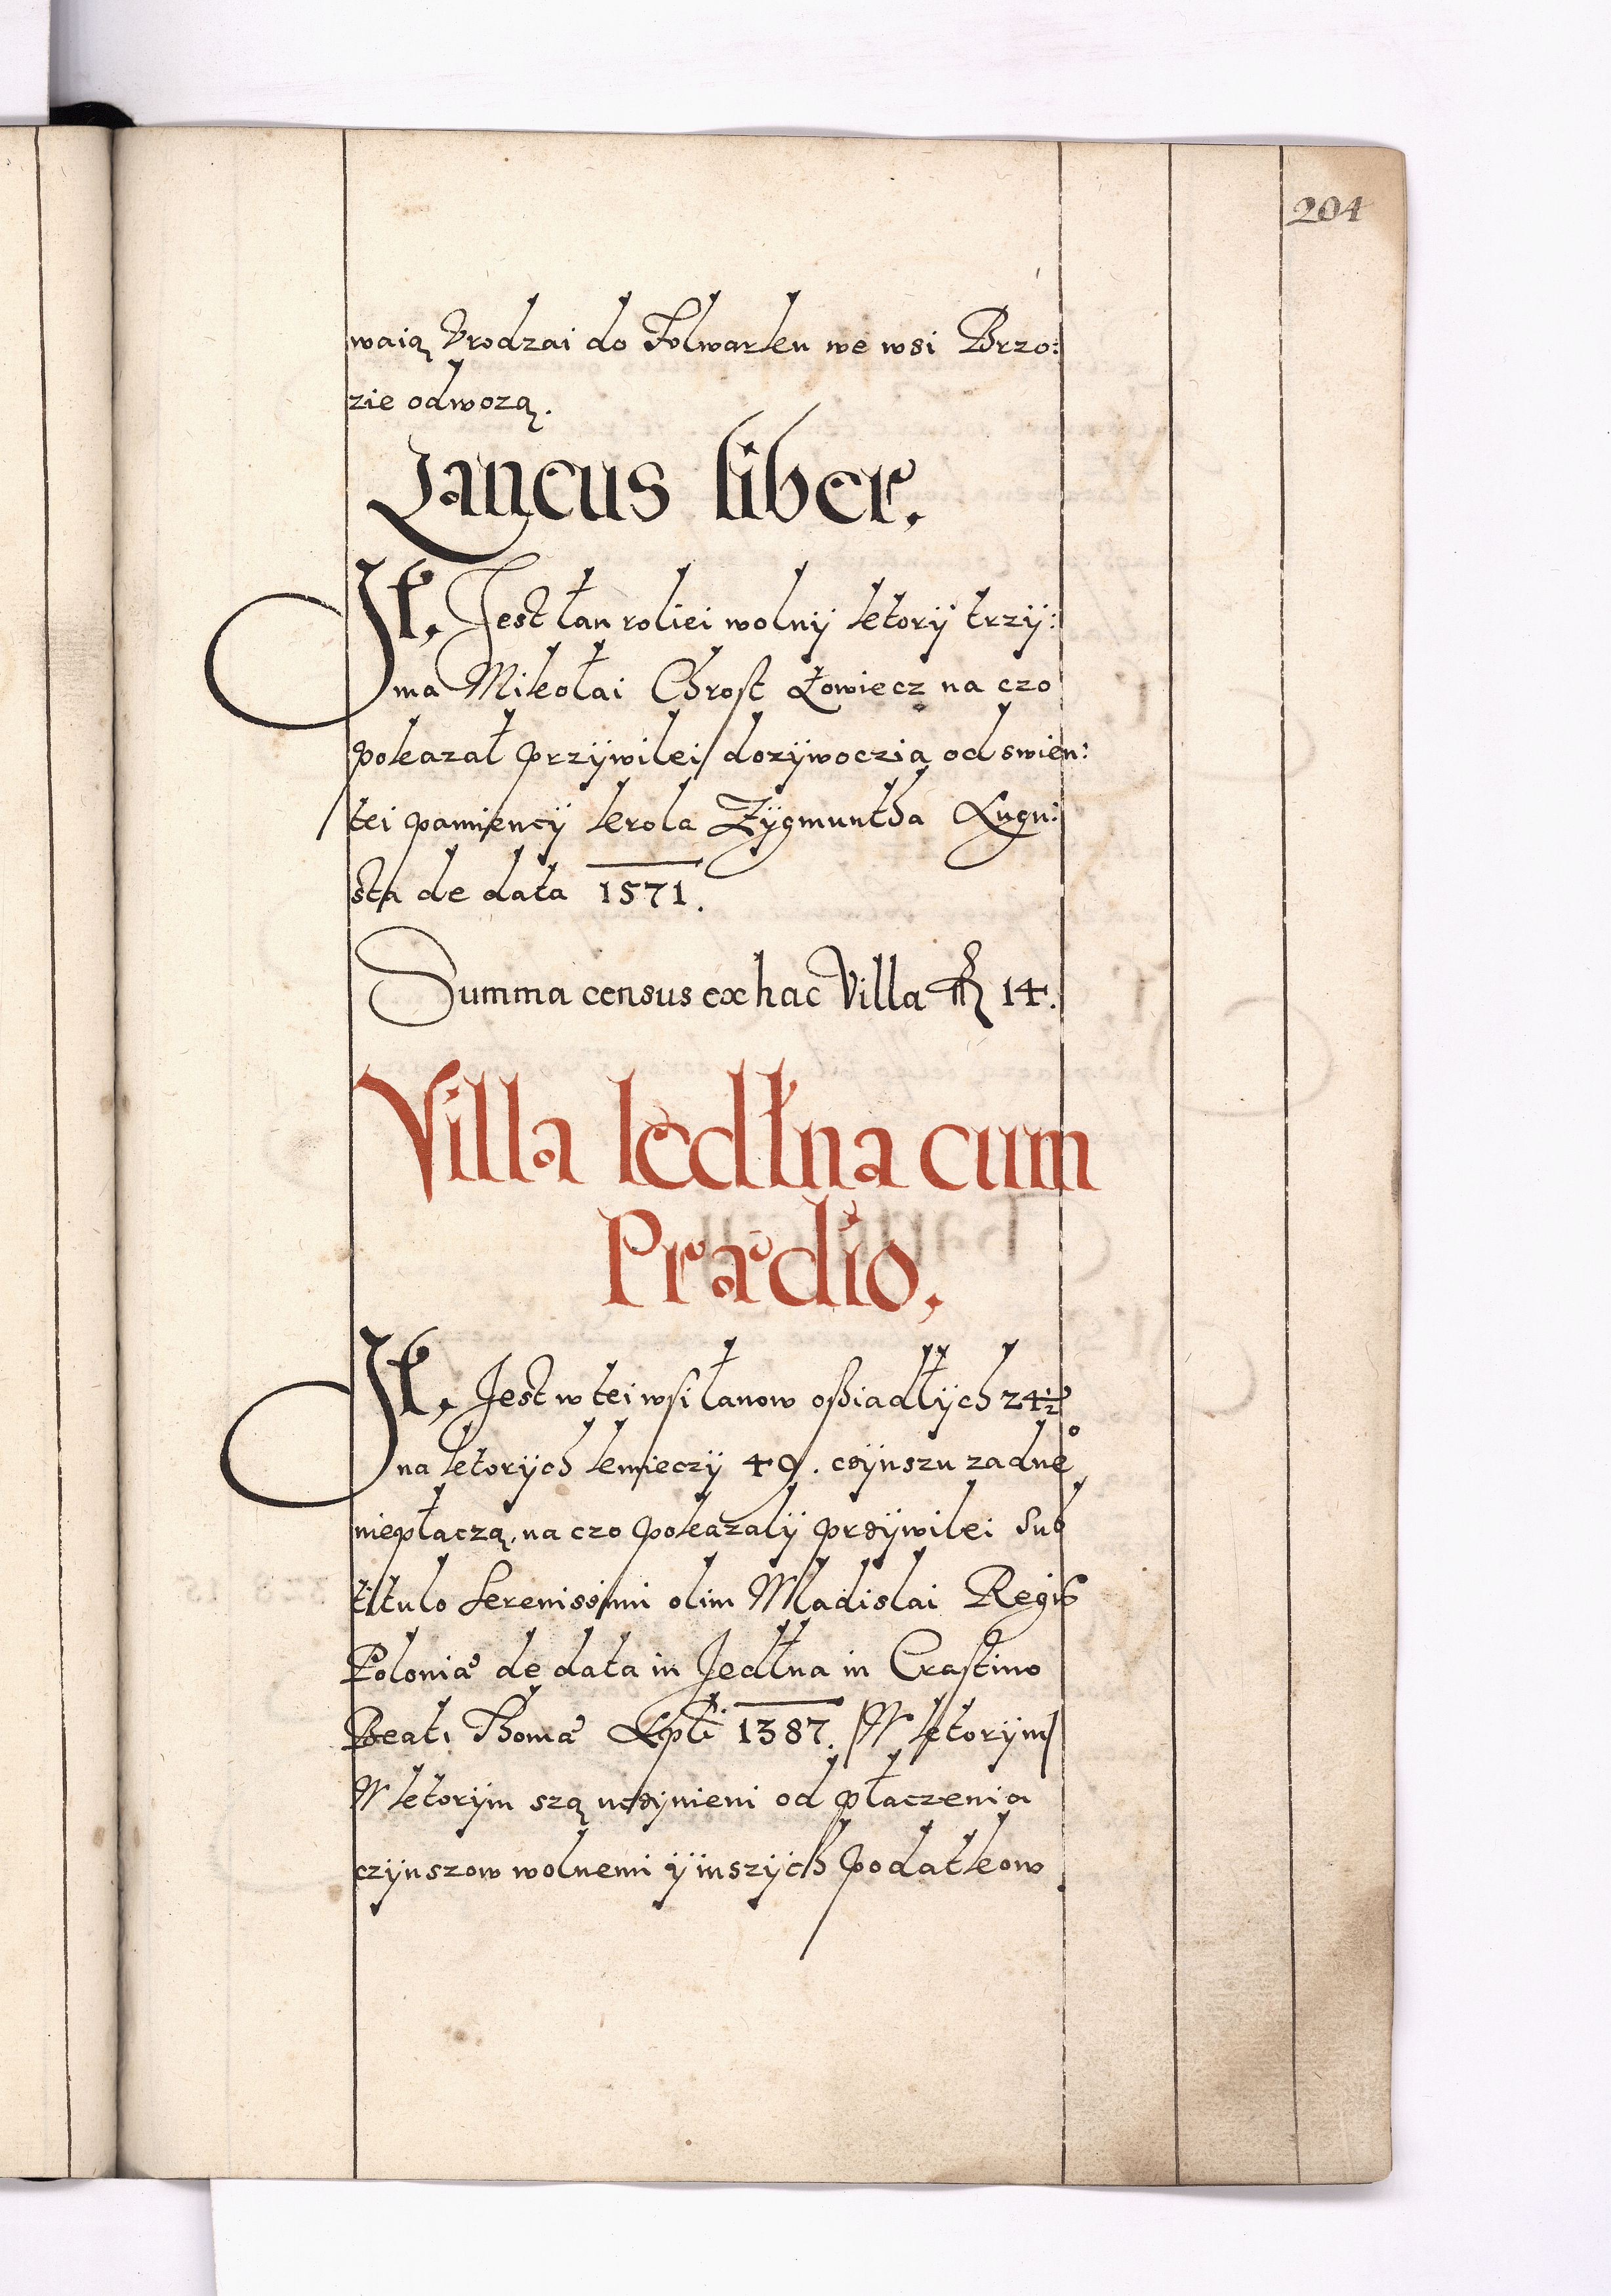 204
waią Vrodzai do Folwarku we wsi Brzo:
zie odwozą.
Laneus liber.
It, Jest łan roliei wolnÿ ktorÿ trzÿ:
ma Mikołai Chrost Łowiecz na czo
pokazał przÿwilei dozÿwoczia od swien:
tei pamiencÿ krola Zÿgmuntha Augu:
sta de data 1571.
Summa census ex hac Villa 14.
Villa Iedlna cum
Prædio,
It, Jest w tei wsi łanow ossiadłÿch 24½
na ktorÿch kmieczÿ 49. czÿnszu zadne°
niepłaczą, na czo pokazalÿ przÿwilei sub
titulo Serenissimi olim Wladislai Regis
Poloniæ de data in Jedlna in Crastino
Beati Thomæ Apli 1387. /W ktorÿm/
W ktorÿm szą uczÿnieni od płaczenia
czÿnszow wolnemi ÿ inszÿch podatkow